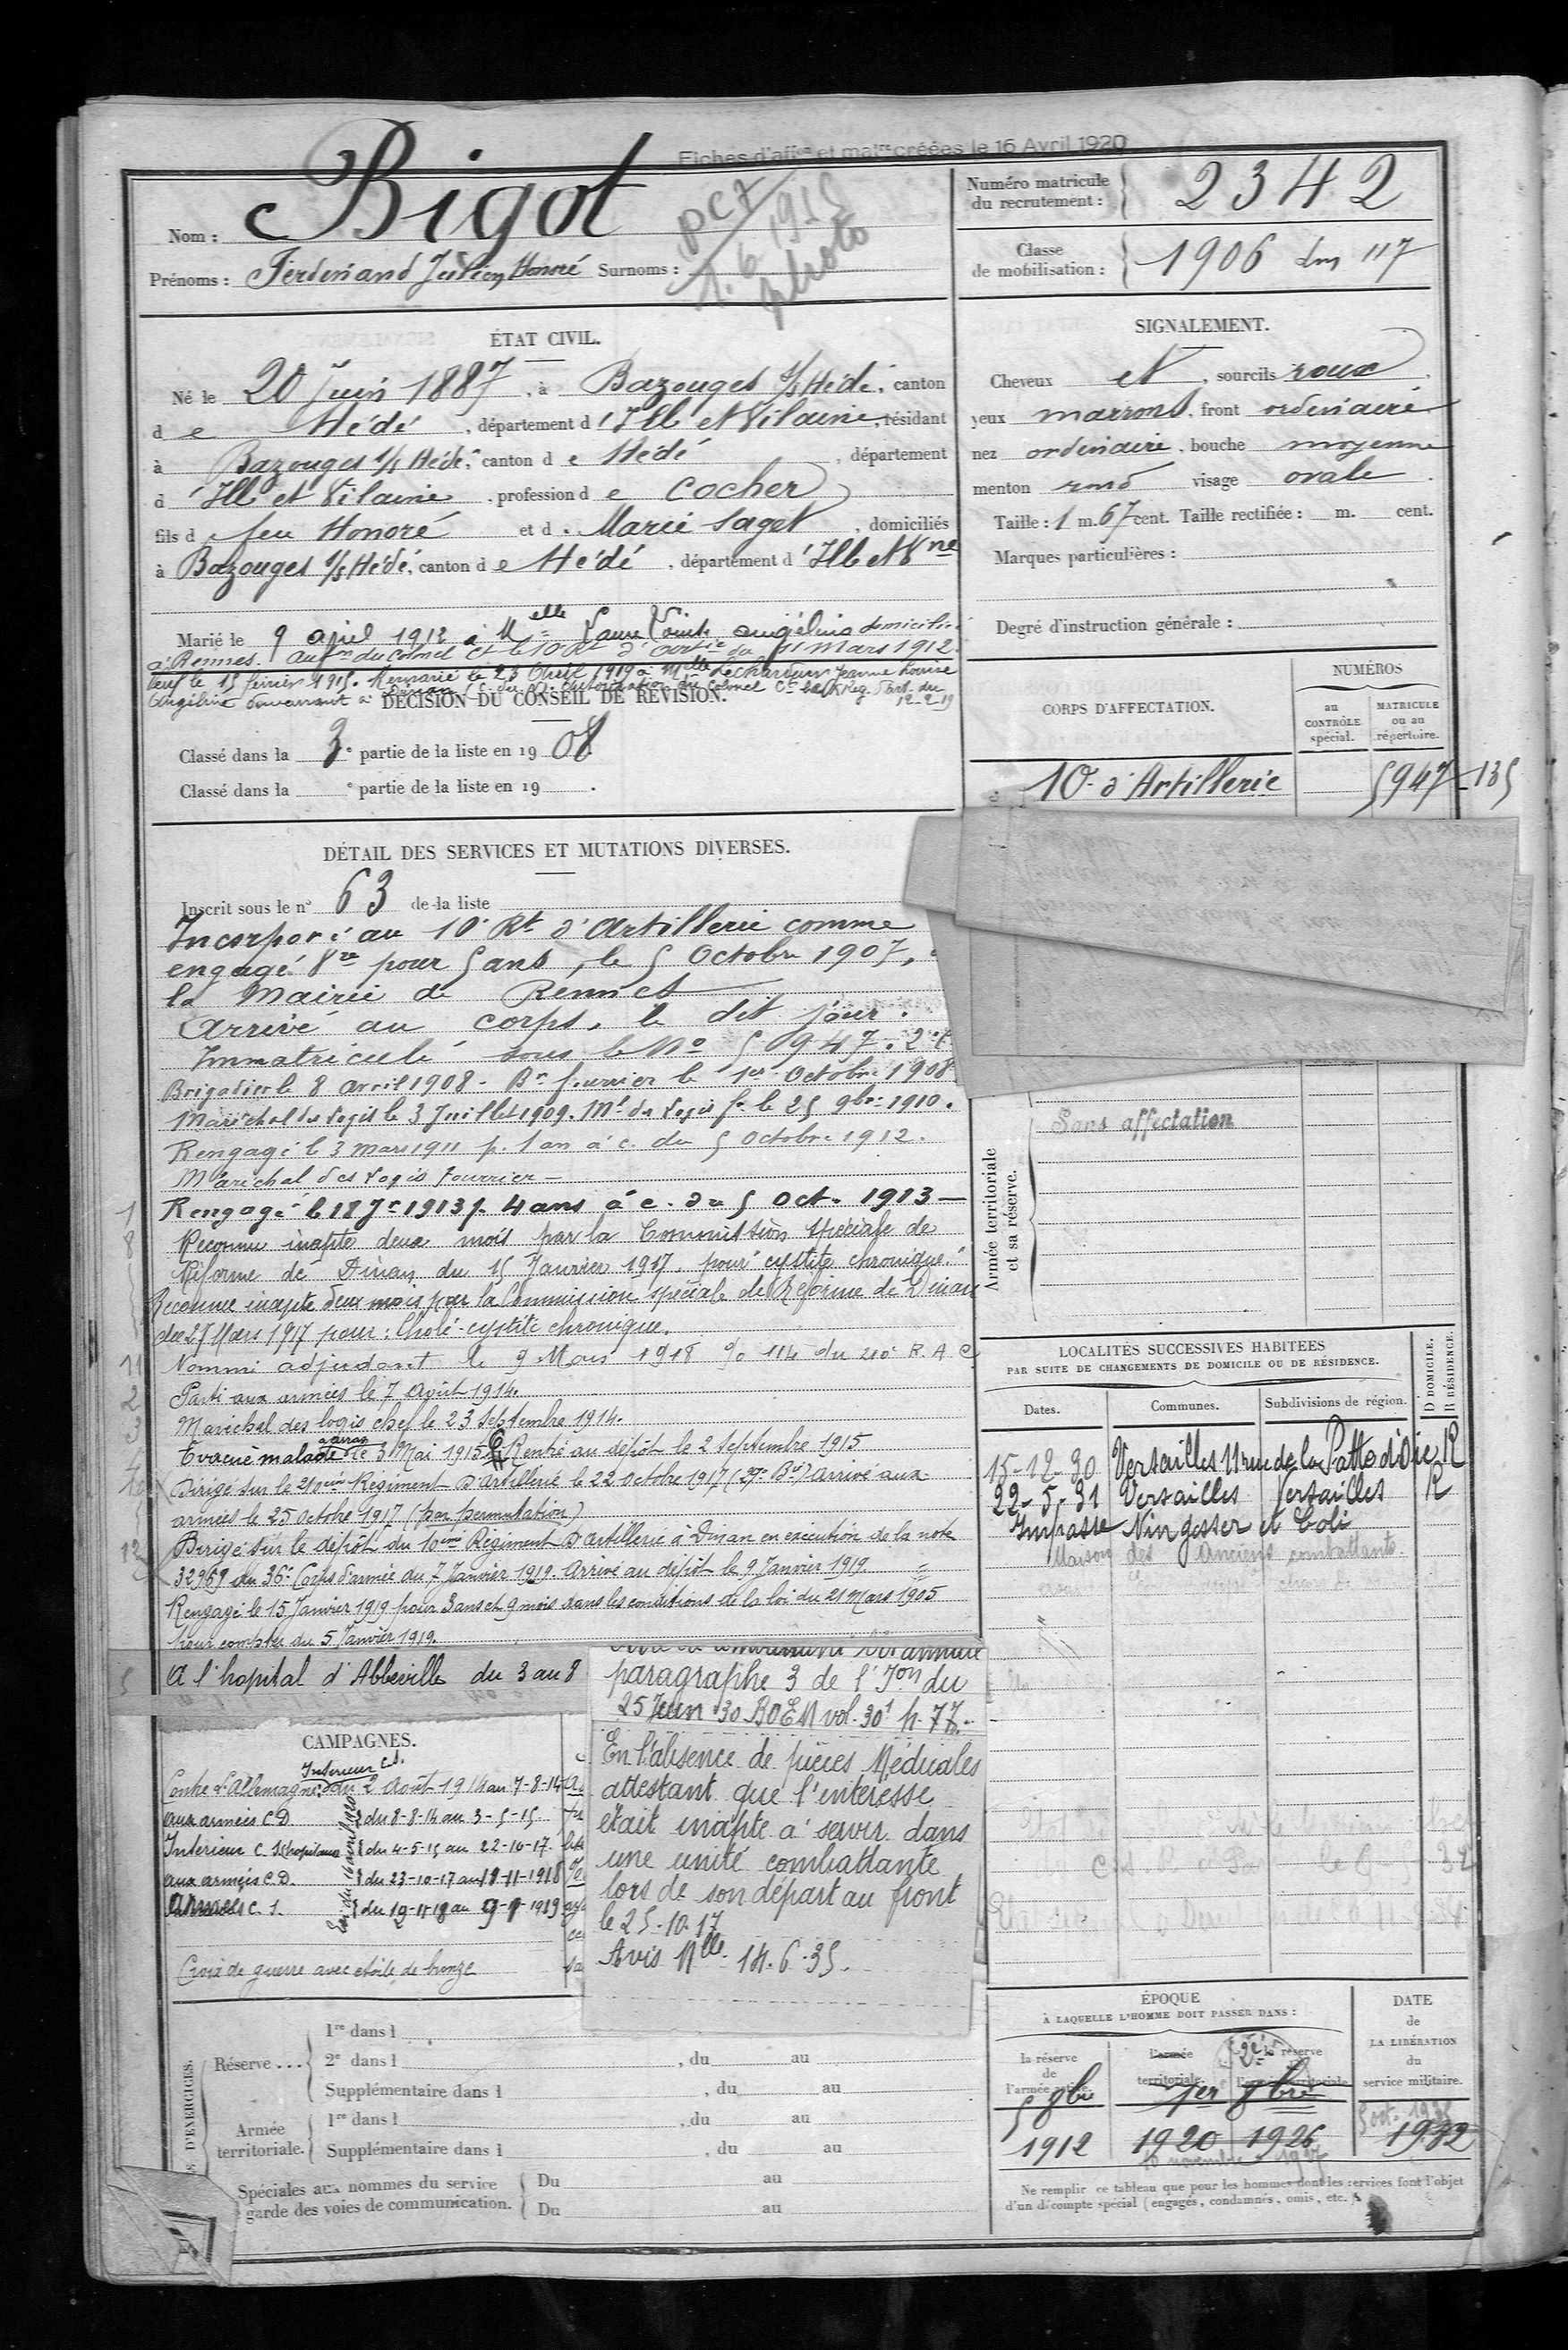 Fiches d'aff^on et mat^re créées le 16 Avril 1920
Nom : Bigot
Prénoms : Ferdinand Julien Honoré Surnoms :
PC7
1.6.1935
photo
Numéro matricule du recrutement : 2342
Classe de mobilisation : 1906
ÉTAT CIVIL.
Né le 20 Juin 1887, à Bazouges s/s Hédé, canton
de Hédé, département d'Ille et Vilaine, résidant
à Bazouges s/s Hédé, canton de Hédé, département
d'Ille et Vilaine, profession de cocher
fils d feu Honoré et d. Marie Saget, domiciliés
à Bazouges s/s Hédé, canton de Hédé, département d'Ille et V^ne
Marié le 9 avril 1912 à M^elle Angélina domiciliée
à Rennes. Aut^on du Colonel C^t le 10 R^t d'Art^ie du 11 mars 1912.
Veuf le 15 février 1915. Remarié le 23 Avril 1919 à M^elle Jeanne Louise
Angéline demeurant à Dinan (C. du N). Autorisation du Colonel C^t le X Reg. d'Art. du
12-2-19
DÉCISION DU CONSEIL DE RÉVISION.
Classé dans la 3e partie de la liste en 1908.
Classé dans la e partie de la liste en 19 .
SIGNALEMENT.
Cheveux et, sourcils roux
yeux marrons, front ordinaire
nez ordinaire, bouche moyenne
menton rond visage ovale.
Taille : 1 m. 67 cent. Taille rectifiée : m. cent.
Marques particulières :
Degré d'instruction générale :
CORPS D'AFFECTATION.
NUMÉROS
au CONTRÔLE spécial.
MATRICULE ou au répertoire.
10e d'Artillerie 5947 - 135
DÉTAIL DES SERVICES ET MUTATIONS DIVERSES.
Inscrit sous le n° 63 de la liste
Incorporé au 10e Rt d'Artillerie comme
engagé V^re pour 5 ans, le 5 Octobre 1907,
la Mairie de Rennes
Arrivé au corps, le dit jour.
Immatriculé sous le No 5947. 2e
Brigadier le 8 avril 1908 - B^r fourrier le 1er Octobre 1908
Maréchal des Logis le 3 Juillet 1909. M^l des Logis f^r le 25 9bre 1910.
Rengagé le 3 mars 1911 p. 1 an à c. du 5 Octobre 1912.
Maréchal des Logis Fourrier -
Rengagé le 18 1913 p. 4 ans à c. du 5 Oct. 1913 -
Reconnu inapte deux mois par la Commission spéciale de
Réforme de Dinan du 15 Janvier 1917. pour "cystite chronique."
Reconnu inapte deux mois par la Commission spéciale de Réforme de Dinan
du 27 Mars 1917 pour : Cholé-cystite chronique.
Nommé adjudant le 9 Mars 1918 % 114 du 210e R.A.C.
Parti aux armées le 7 Août 1914.
Maréchal des logis chef le 23 Septembre 1914.
Evacué malade le 3 Mai 1915 Rentré au dépôt le 2 Septembre 1915
Dirigé sur le 210eme Régiment d'Artillerie le 22 Octobre 1917 (27e B^ie) arrivé aux
armées le 25 octobre 1917 (par permutation)
Dirigé sur le dépôt du 10eme Régiment d'artillerie à Dinan en exécution de la note
32969 du 36e Corps d'armée du 7 Janvier 1919. Arrivé au dépôt le 9 Janvier 1919.
Rengagé le 15 Janvier 1919 pour 3 ans et 9 mois dans les conditions de la loi du 21 Mars 1905
pour compter du 5 Janvier 1919.
A l'hopital d'Abbeville du 3 au 8
1
8
11
2
3
4
10
5
12
Armée territoriale et sa réserve.
Sans affectation
LOCALITÉS SUCCESSIVES HABITÉES
PAR SUITE DE CHANGEMENTS DE DOMICILE OU DE RÉSIDENCE.
Dates. Communes. Subdivisions de région. D DOMICILE. R RÉSIDENCE.
15-12-30 Versailles 11 rue de la Patte d'Oie R
22-5-31 Versailles Versailles R
Impasse Nungesser et Coli
Maison des Anciens combattants.
CAMPAGNES.
Intérieur C.S.
Contre l'Allemagne : du 2 Août 1914 au 7-8-14
aux armées C.D. du 8-8-14 au 3-5-15
Intérieur C.S. hopitaux du 4-5-15 au 22-10-17.
aux armées C.D. du 23-10-17 au 18-11-1918
C.S. du 19-11-18 au 9-1-1919
Croix de guerre avec étoile de bronze
paragraphe 3 de l'I^on du
25 Juin 30 BOEM vol. 30^1 p. 77.
En l'absence de pièces Médicales
attestant que l'intéressé
était inapte à servir dans
une unité combattante
lors de son départ au front
le 25-10-17
Avis M^lle 14.6.35.
D'EXERCICES.
Réserve ... 1re dans l
2e dans l , du au
Supplémentaire dans l , du au
Armée territoriale. 1re dans l , du au
Supplémentaire dans l , du au
Spéciales aux hommes du service
garde des voies de communication. Du au
Du au
ÉPOQUE
À LAQUELLE L'HOMME DOIT PASSER DANS :
la réserve de l'armée active.
l'armée territoriale.
réserve de l'armée territoriale
DATE de LA LIBÉRATION du service militaire.
5 8bre 1er 8bre
1912 1920 1926 1932
Ne remplir ce tableau que pour les hommes dont les services font l'objet
d'un décompte spécial (engagés, condamnés, omis, etc.)